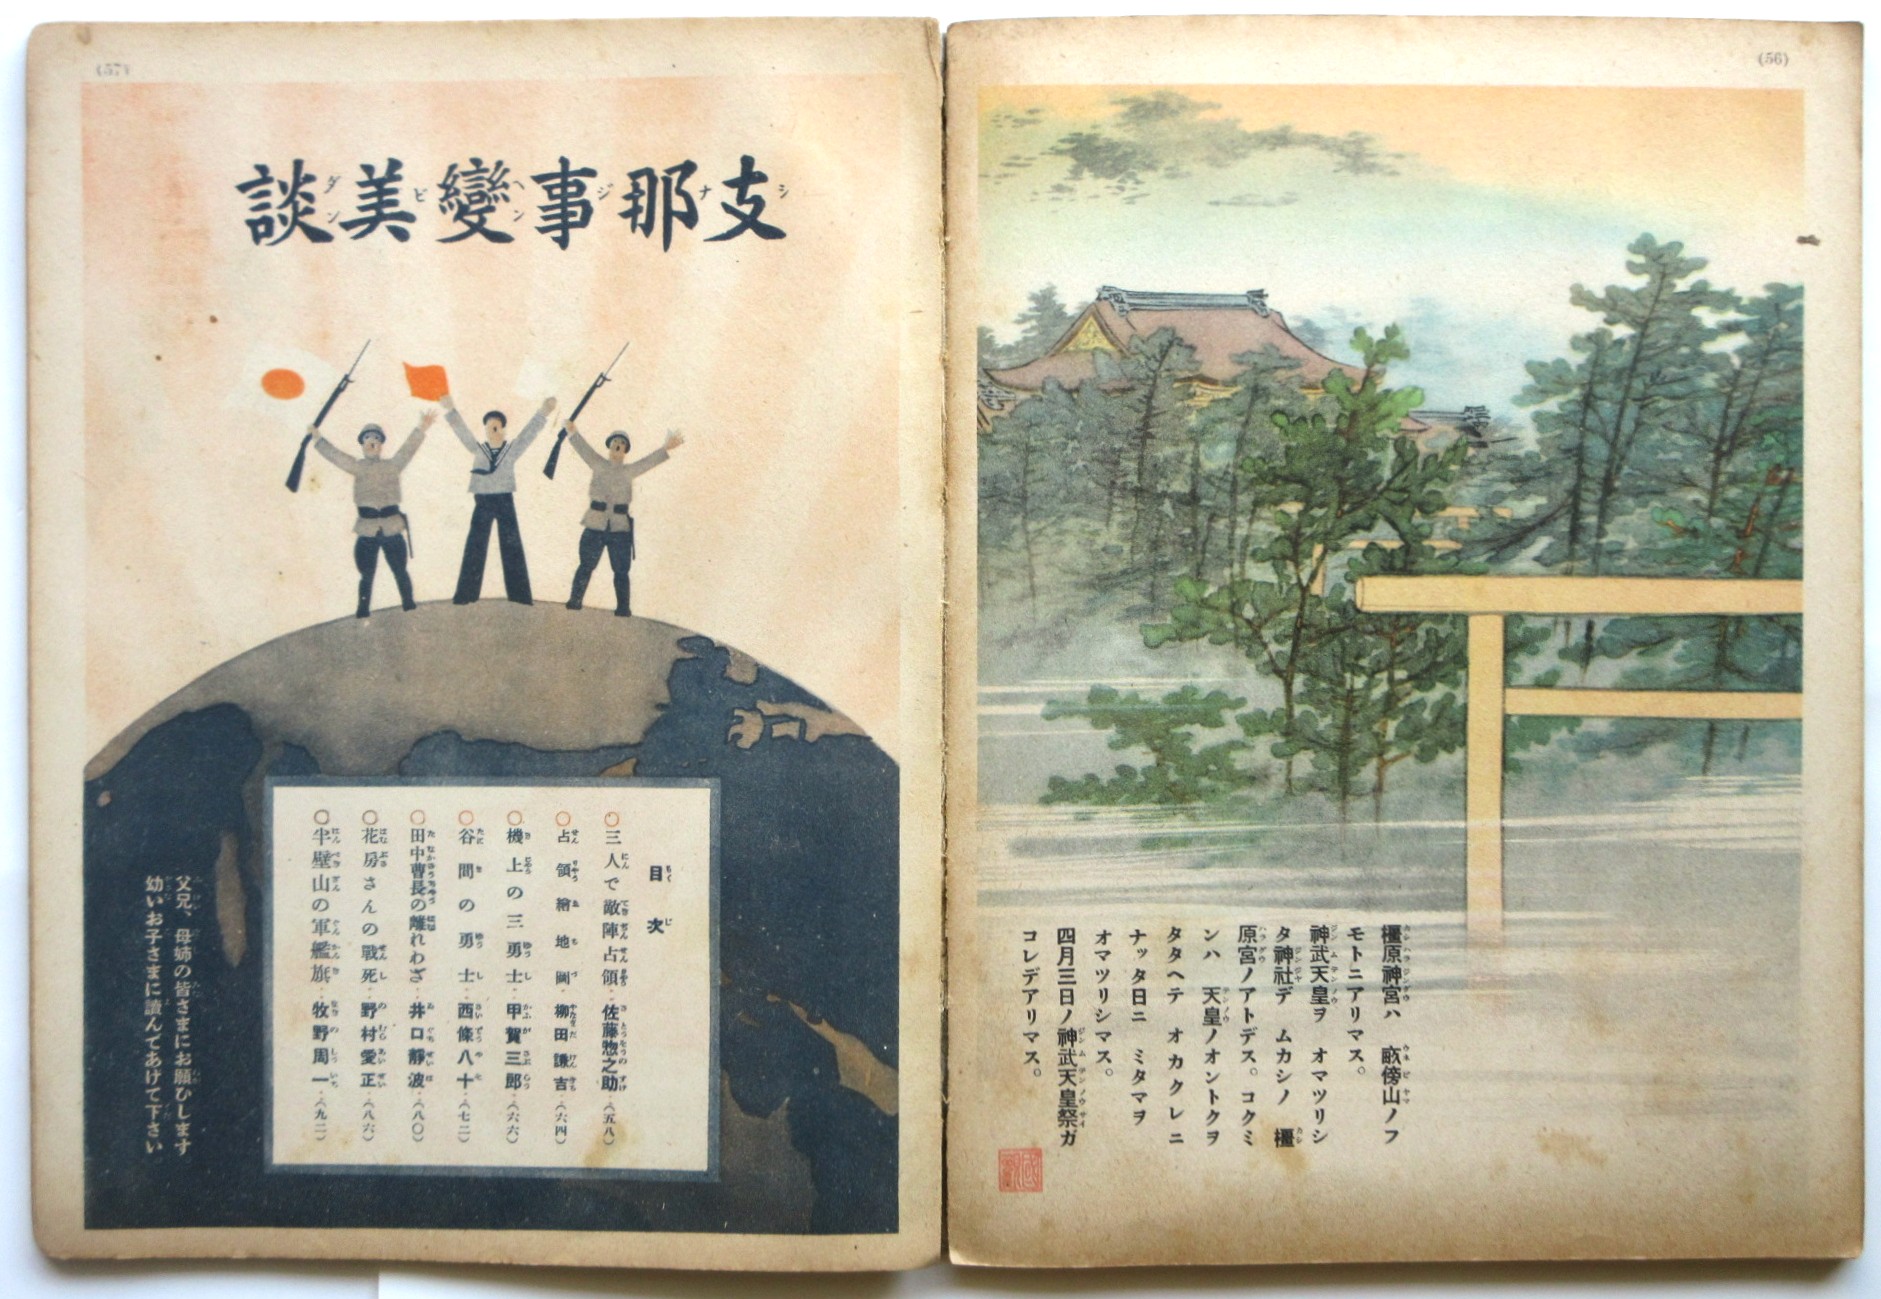 (56)
橿原神宮ハ　畝傍山ノフ
モトニアリマス。
神武天皇ヲ　オマツリシ
タ神社デ　ムカシノ　橿
原宮ノアトデス。コクミ
ンハ　天皇ノオントクヲ
タタヘテ　オカクレニ
ナッタ日ニ　ミタマヲ
オマツリシマス。
四月三日ノ神武天皇祭ガ
コレデアリマス。
(57)
支那事變美談
目次
○三人で敵陣占領・佐藤惣之助・(五八)
○占領繪地圖・柳田謙吉・(六四)
○機上の三勇士・甲賀三郎・(六六)
○谷間の勇士・西條八十・(七二)
○田中曹長の離れわざ・井口靜波・(八〇)
○花房さんの戰死・野村愛正・(八六)
○半壁山の軍艦旗・牧野周一・(九二)
父兄、母姉の皆さまにお願ひします
幼いお子さまに讀んであげて下さい